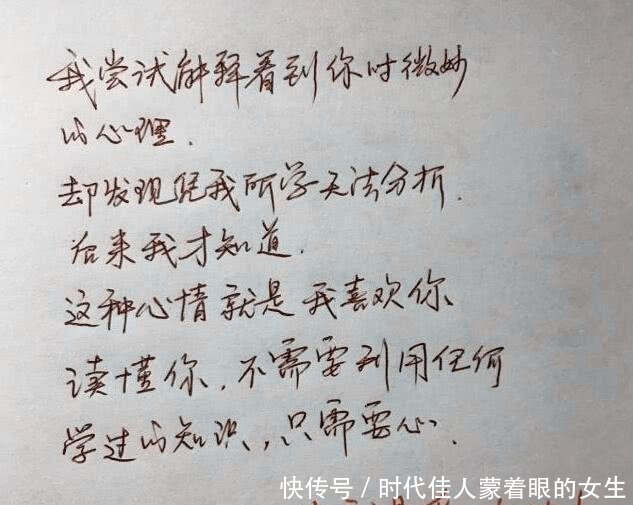 我尝试解释看到你时微妙
的心理.
却发现凭我所学无法分析.
后来我才知道.
这种心情就是我喜欢你
读懂你,不需要利用任何
学过的知识,只需要心.
快传号/时代佳人蒙着眼的女生